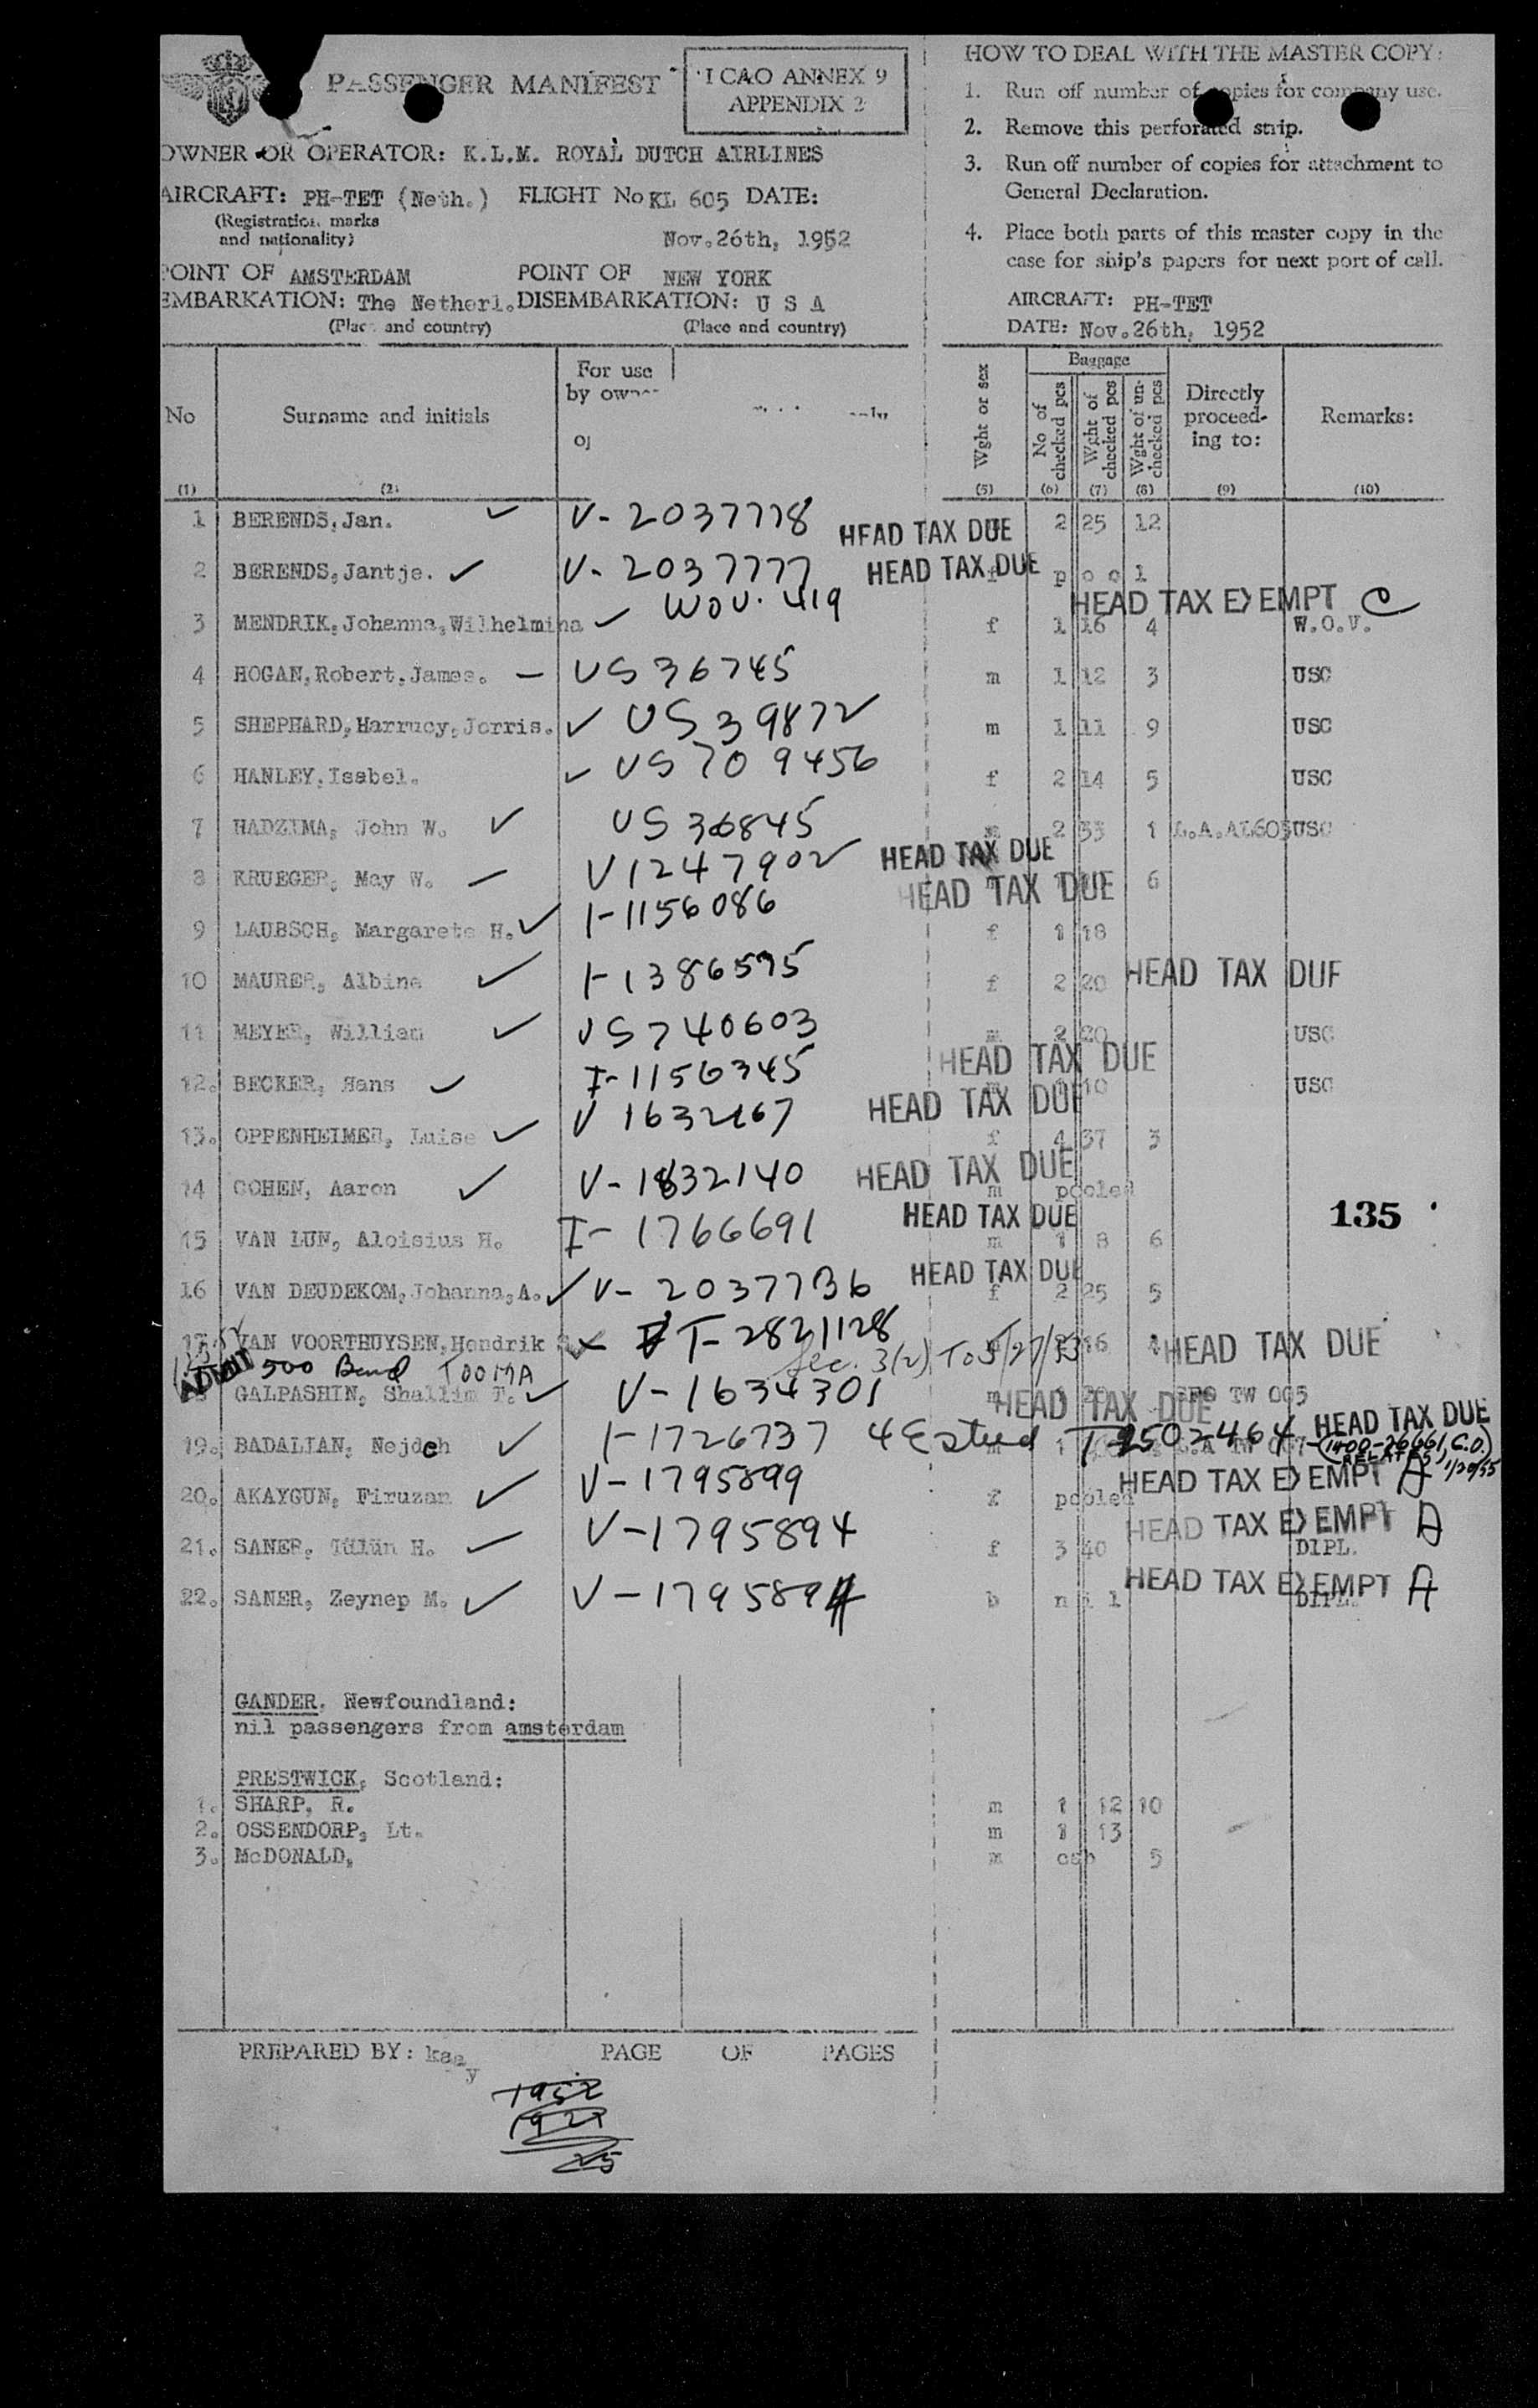 PASSENGER MANIFEST
ICAO ANNEX 9
APPENDIX 2
OWNER OR OPERATOR: K.L.M. ROYAL DUTCH AIRLINES
AIRCRAFT: PH-TET (Neth.) FLIGHT No KL 605 DATE:
(Registration marks
and nationality)
Nov.26th, 1952
POINT OF AMSTERDAM POINT OF NEW YORK
EMBARKATION: The Netherl. DISEMBARKATION: U S A
(Place and country) (Place and country)
HOW TO DEAL WITH THE MASTER COPY:
1. Run off number of copies for company use.
2. Remove this perforated strip.
3. Run off number of copies for attachment to
General Declaration.
4. Place both parts of this master copy in the
case for ship's papers for next port of call.
AIRCRAFT: PH-TET
DATE: Nov.26th, 1952
No Surname and initials For use
by owner
Wght or sex Baggage No of checked pcs Wght of checked pcs Wght of un-checked pcs Directly proceed-ing to: Remarks:
(1) (2) (5) (6) (7) (8) (9) (10)
1 BERENDS,Jan. V-2037778 HEAD TAX DUE 2 25 12
2 BERENDS,Jantje. V-2037777 HEAD TAX DUE f p o o l
3 MENDRIK,Johanna,Wilhelmina WOV. 419 f 1 16 4 HEAD TAX EXEMPT C W.O.V.
4 HOGAN,Robert,James. US 36745 m 1 12 3 USC
5 SHEPHARD,Harrucy,Jorris. US 39872 m 1 11 9 USC
6 HANLEY,Isabel. US 709456 f 2 14 5 USC
7 HADZIMA, John W. US 36845 m 2 33 1 L.A.AL603 USC
8 KRUEGER, May W. V1247902 HEAD TAX DUE 6
9 LAUBSCH, Margarete H. I-1156086 HEAD TAX DUE f 1 18
10 MAURER, Albine I-1386595 f 2 20 HEAD TAX DUE
11 MEYER, William US740603 m 2 20 USC
12. BECKER, Hans I-1156345 HEAD TAX DUE 10 USC
13. OPPENHEIMER, Luise V 1632167 HEAD TAX DUE f 4 37 3
14 COHEN, Aaron V-1832140 HEAD TAX DUE m pooled
135
15 VAN LUN, Aloisius H. I-1766691 HEAD TAX DUE m 1 8 6
16 VAN DEUDEKOM,Johanna,A. V-2037736 HEAD TAX DUE f 2 25 5
17 VAN VOORTHUYSEN,Hendrik T-2821128 16 4 HEAD TAX DUE
ADMIT 500 Bond Sec. 3(2) To 5/27/53
GALPASHIN, Shallim F. V-1634301 HEAD TAX DUE m SFO TW 005
19. BADALIAN, Nejdeh I-1726737 4 Ested T-2502464 HEAD TAX DUE m 1
(1400-26661, C.O.)
RELATES 1/20/55
20. AKAYGUN, Firuzan V-1795899 f pooled HEAD TAX EXEMPT A
21. SANER, Tülün H. V-1795894 f 3 40 HEAD TAX EXEMPT A DIPL.
22. SANER, Zeynep M. V-1795894 b n i l HEAD TAX EXEMPT A DIPL.
GANDER, Newfoundland:
nil passengers from amsterdam
PRESTWICK, Scotland:
1. SHARP, R. m 1 12 10
2. OSSENDORP, Lt. m 1 13
3. McDONALD, m 5
PREPARED BY: PAGE OF PAGES
1952
1927
25